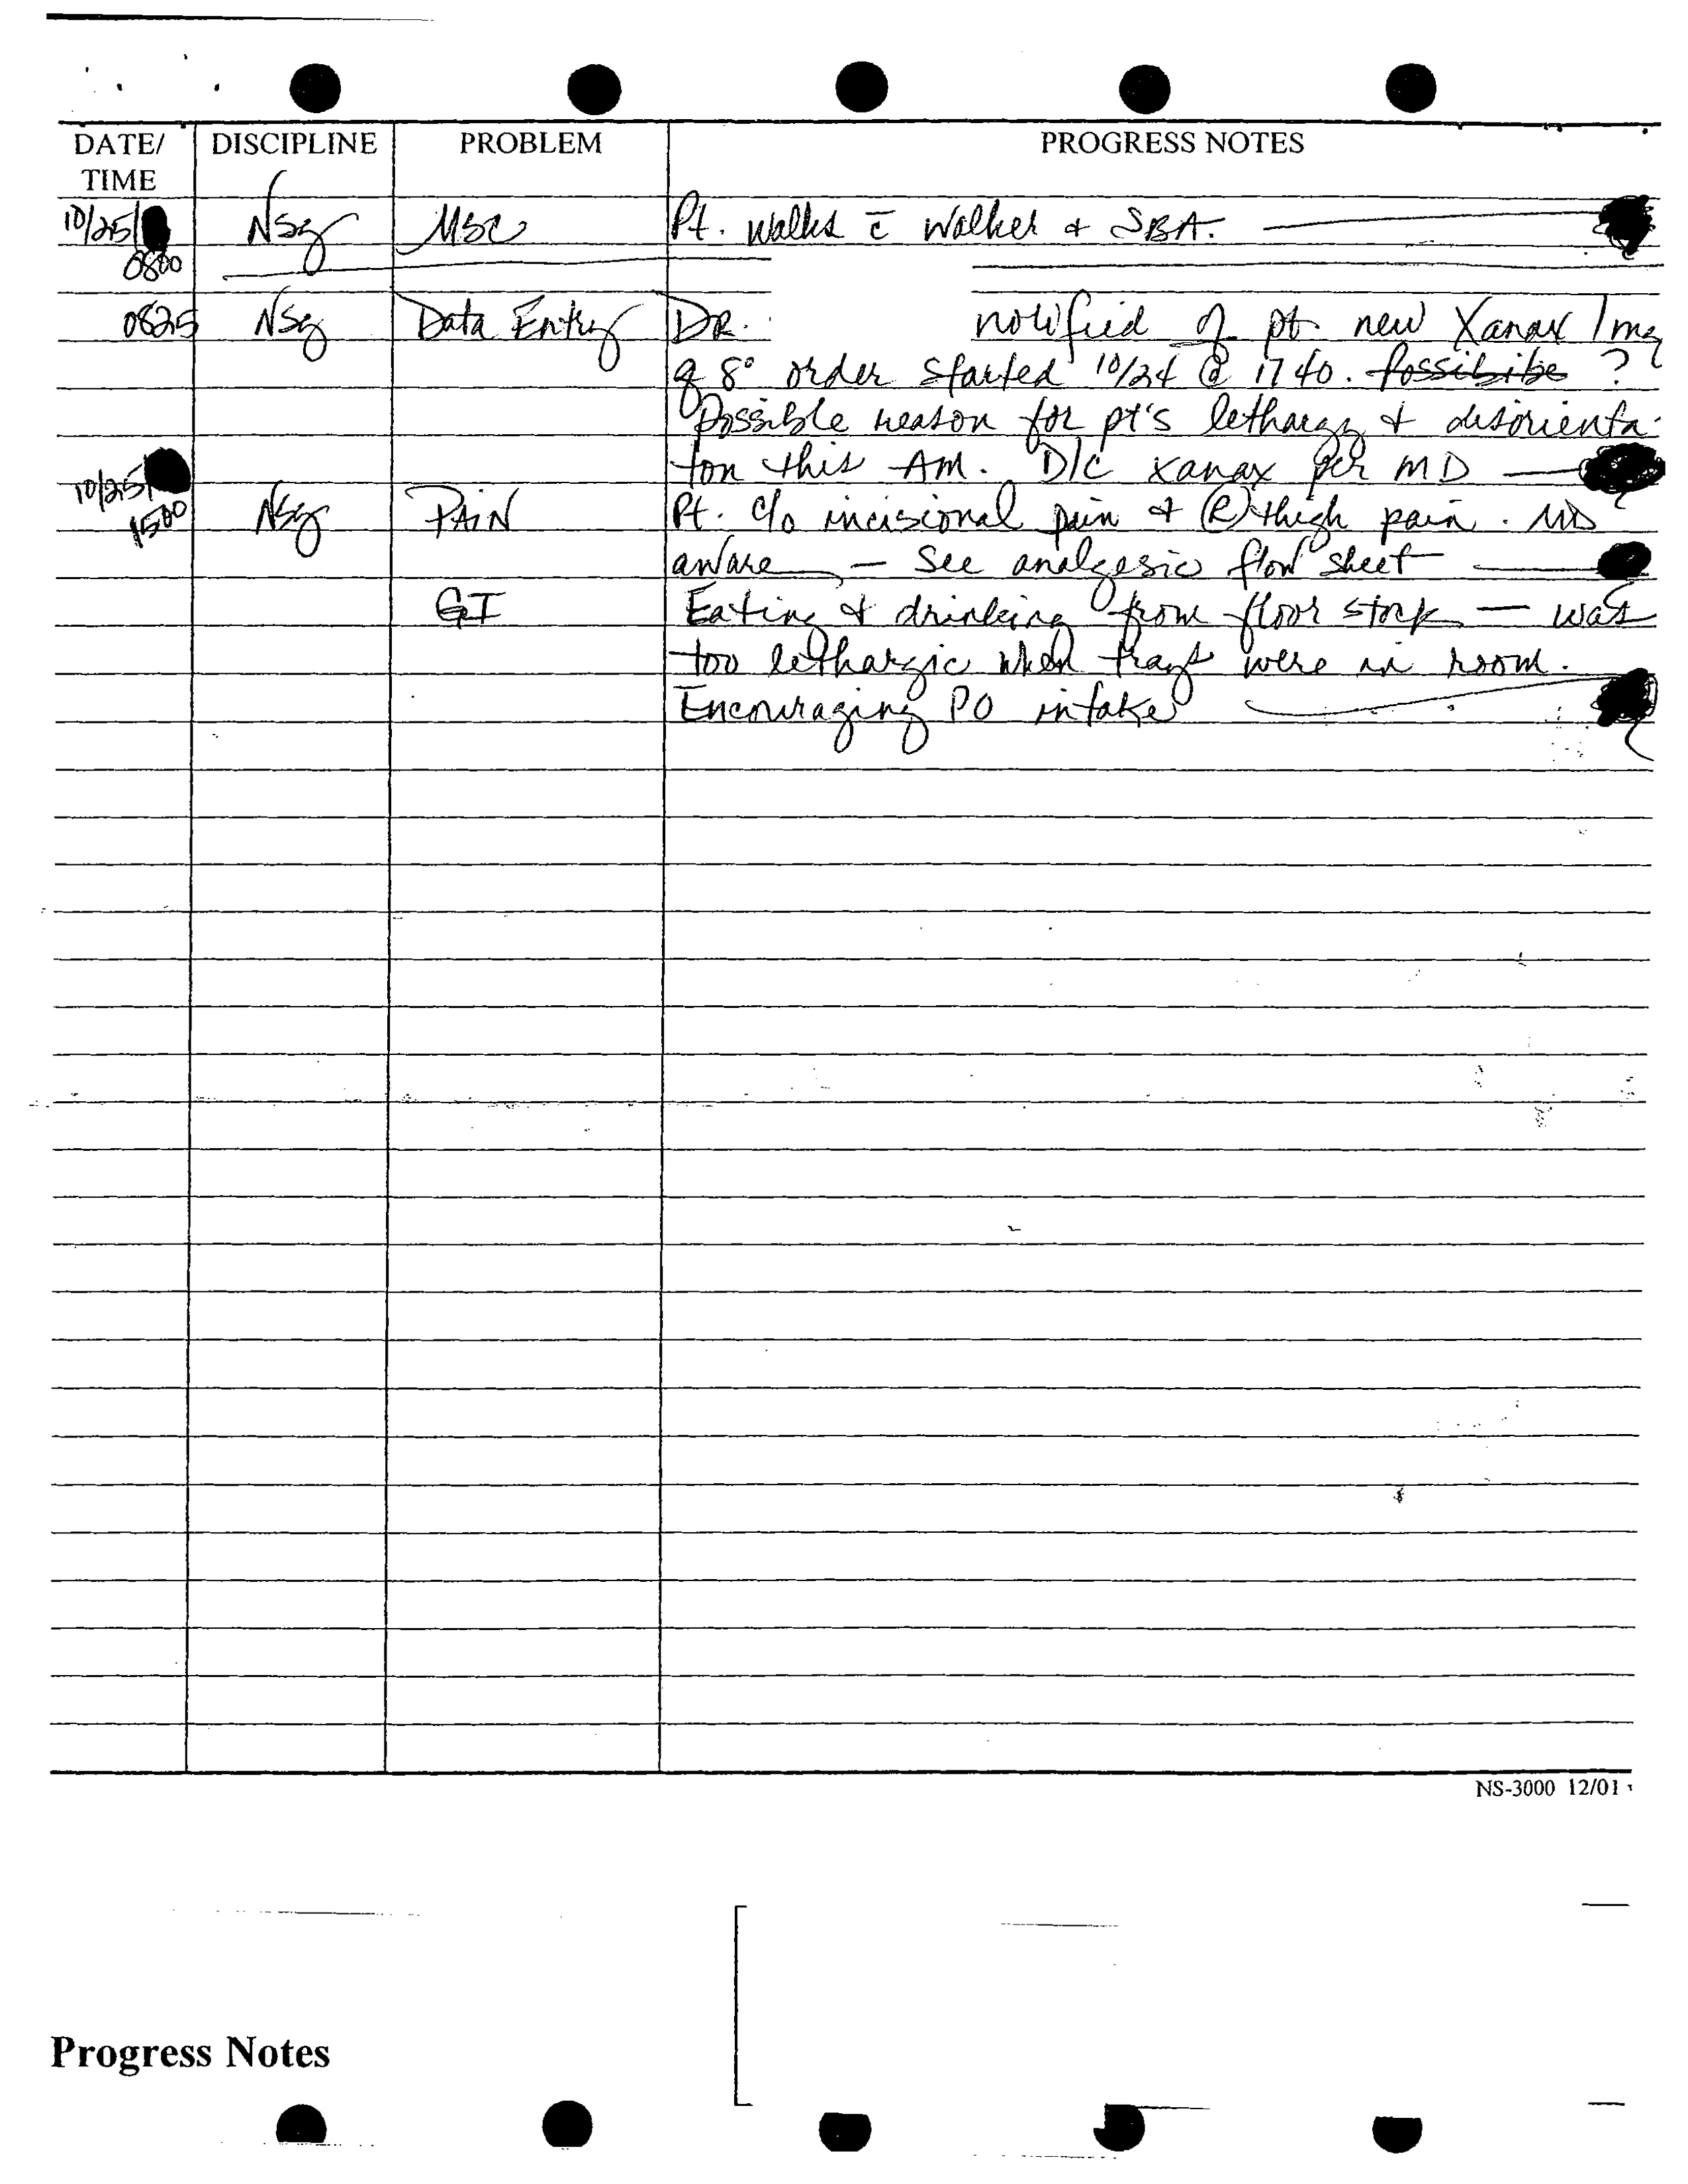 DATE/ DISCIPLINE PROBLEM PROGRESS NOTES
TIME
10/25/ Nsg MSC Pt. walks c̄ walker + SBA.
0800
0825 Nsg Data Entry DR. notified of pt. new Xanax 1mg
q 8° order started 10/24 @ 1740. Possibibe ?
Possible reason for pt's lethargy + disorienta-
ton this AM. D/C xanax per MD
10/25/
1500 Nsg PAIN Pt. c/o incisional pain + (R) thigh pain. MD
aware — See analgesic flow sheet
GI Eating + drinking from floor stock — was
too lethargic when trays were in room.
Encouraging PO intake
NS-3000 12/01
Progress Notes